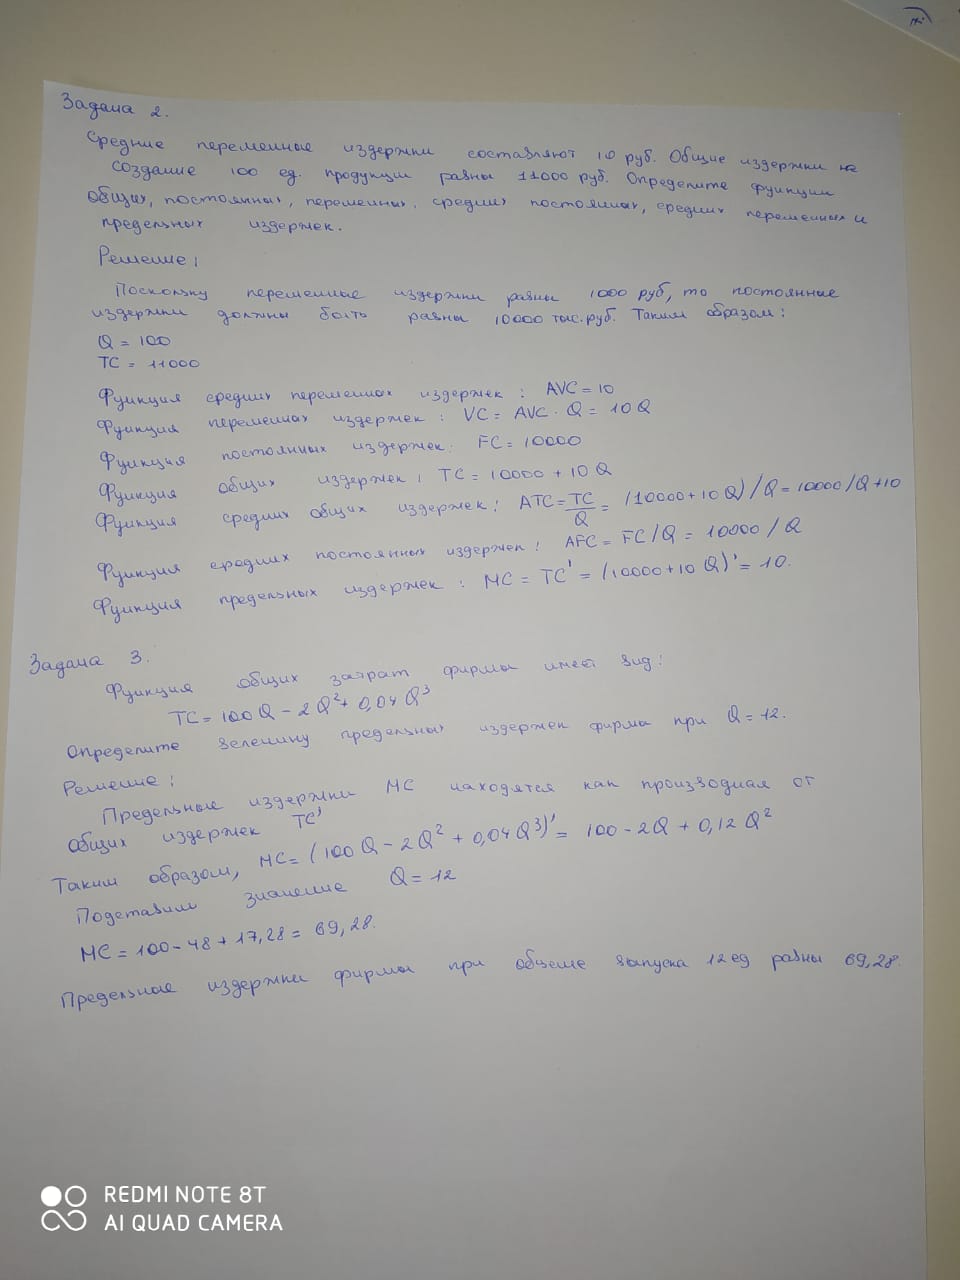 Задача 2.
Средние переменные издержки составляют 10 руб. Общие издержки на
создание 100 ед. продукции равны 11000 руб. Определите функции
общих, постоянных, переменных, средних постоянных, средних переменных и
предельных издержек.
Решение:
Поскольку переменные издержки равны 1000 руб, то постоянные
издержки должны быть равны 10000 тыс.руб. Таким образом:
Q = 100
TC = 11000
Функция средних переменных издержек: AVC = 10
Функция переменных издержек: VC = AVC · Q = 10Q
Функция постоянных издержек: FC = 10000
Функция общих издержек: TC = 10000 + 10Q
Функция средних общих издержек: ATC = TC/Q = (10000 + 10Q)/Q = 10000/Q + 10
Функция средних постоянных издержек: AFC = FC/Q = 10000/Q
Функция предельных издержек: MC = TC' = (10000 + 10Q)' = 10.
Задача 3.
Функция общих затрат фирмы имеет вид:
TC = 100Q - 2Q² + 0,04Q³
Определите величину предельных издержек фирмы при Q = 12.
Решение:
Предельные издержки MC находятся как производная от
общих издержек TC'
Таким образом, MC = (100Q - 2Q² + 0,04Q³)' = 100 - 2Q + 0,12Q²
Подставим значение Q = 12
MC = 100 - 48 + 17,28 = 69,28.
Предельные издержки фирмы при объеме выпуска 12 ед равны 69,28.
REDMI NOTE 8T
AI QUAD CAMERA